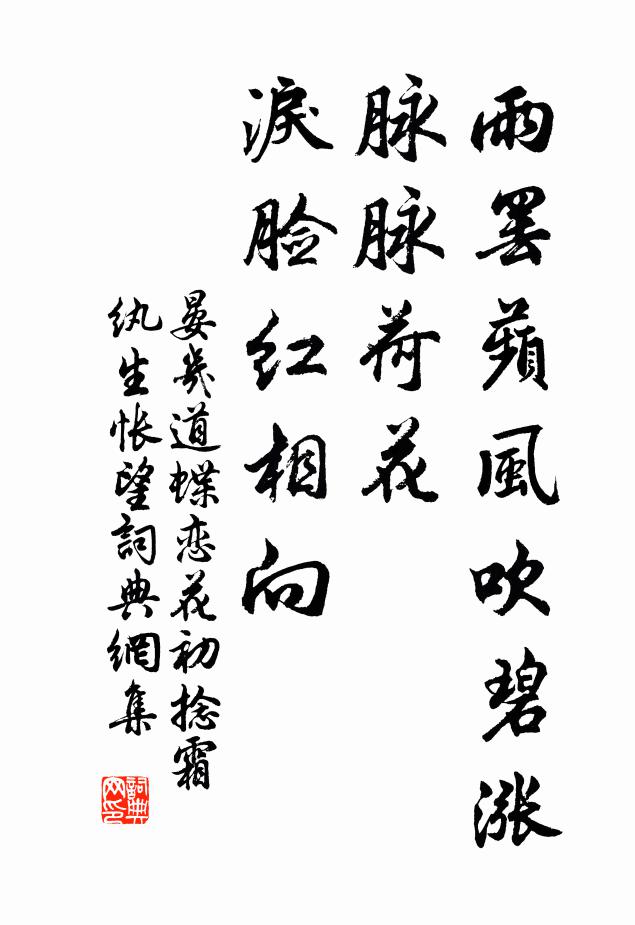 雨罢蘋風吹碧漲
脉脉荷花
淚脸红相向
晏幾道蝶恋花初捻霜
纨生怅望詞典網集
詞典网印